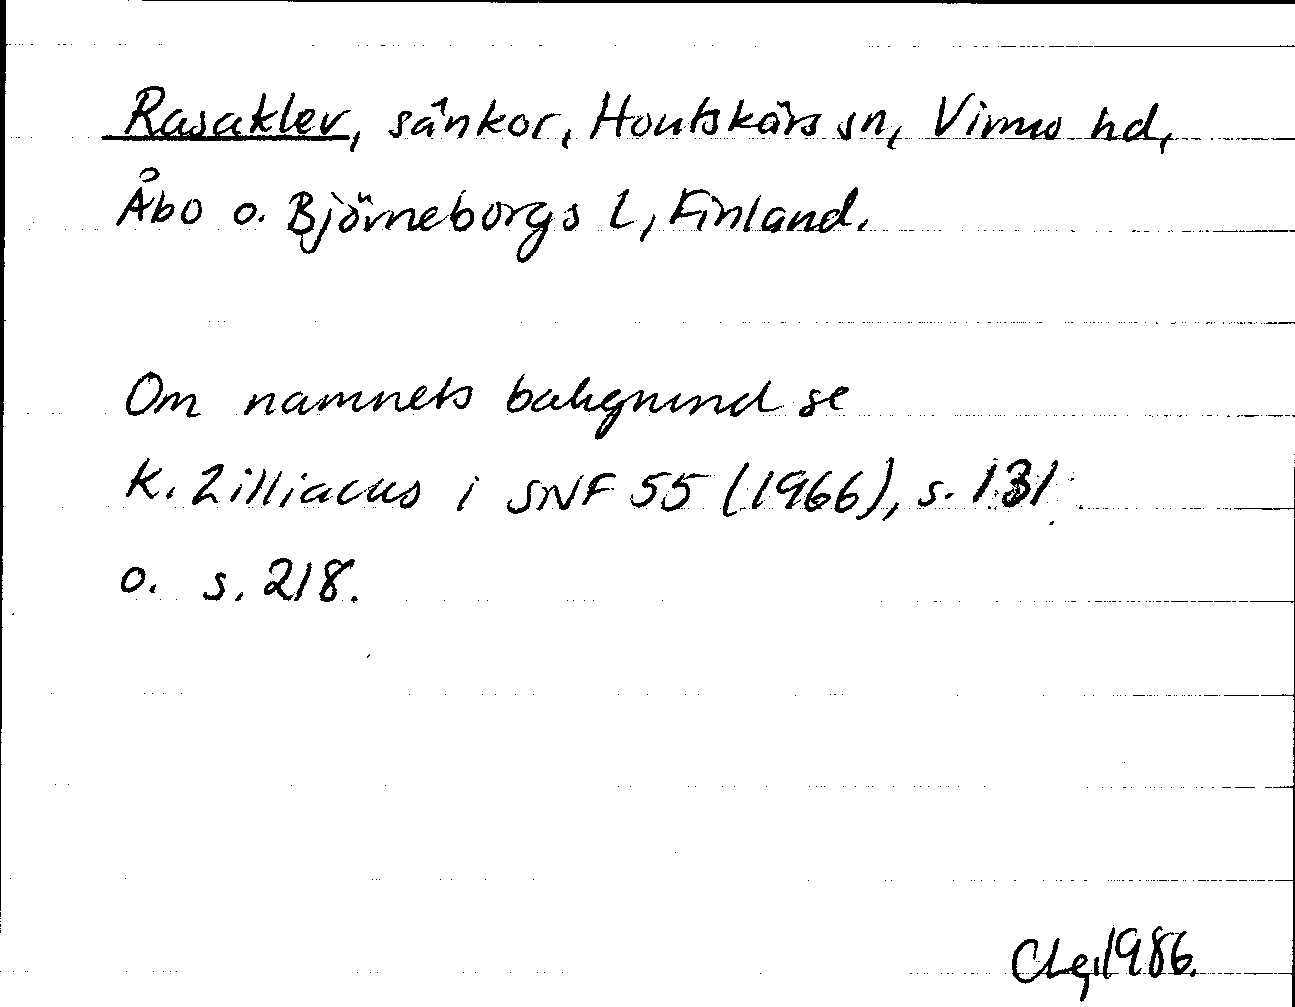 Rasakler, sänkor, Houtskärs sn, Virmo hd,
Åbo o. Björneborgs L, Finland.
Om namnets bakgrund se
K. Zilliacus i SNF 55 (1966), s. 131
o. s. 218.
1986.